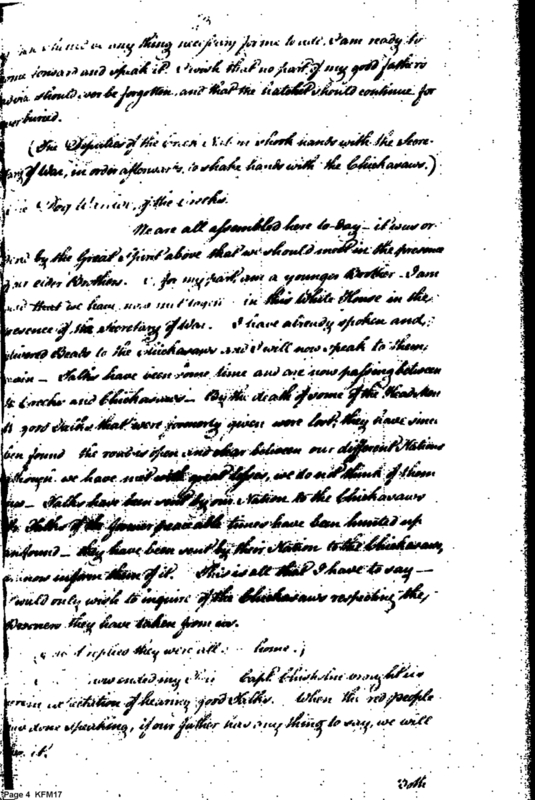 any thing necessary for me to add, I am ready to
come forward and speak it. I wish that no part of my good father's
advice should ever be forgotten, and that the hatchet should continue for
ever buried.
(The Deputies of the Creek Nation shook hands with the Secre-
tary of War, in order afterwards, to shake hands with the Chickasaws.)
of the Creeks.
We are all assembled here to-day – it was or-
by the Great Spirit above that we should meet in the presence
our elder Brothers. I, for my part, am a younger Brother. I am
that we have now met in this White House in the
presence of the Secretary of War. I have already spoken and
delivered Beads to the Chickasaws and I will now speak to them
again – Talks have been some time and are now passing between
the Creeks and Chickasaws – By the death of some of the Headmen
good Talks that were formerly given were lost, they have since
been found the road is open and clear between our different Nations
we have met with great losses, we do not think of them
now – Talks have been sent by our Nation to the Chickasaws
the Talks of the former peaceable times have been hunted up
found – they have been sent by their Nation to the Chickasaws,
now inform them of it. This is all that I have to say –
would only wish to inquire of the Chickasaws respecting the
Prisoners they have taken from us.
replies they were all home.)
Capt. Chisholm brought us
expectation of hearing good Talks. When the red people
have done speaking, if our father has any thing to say, we will
it.
Page 4 KFM17